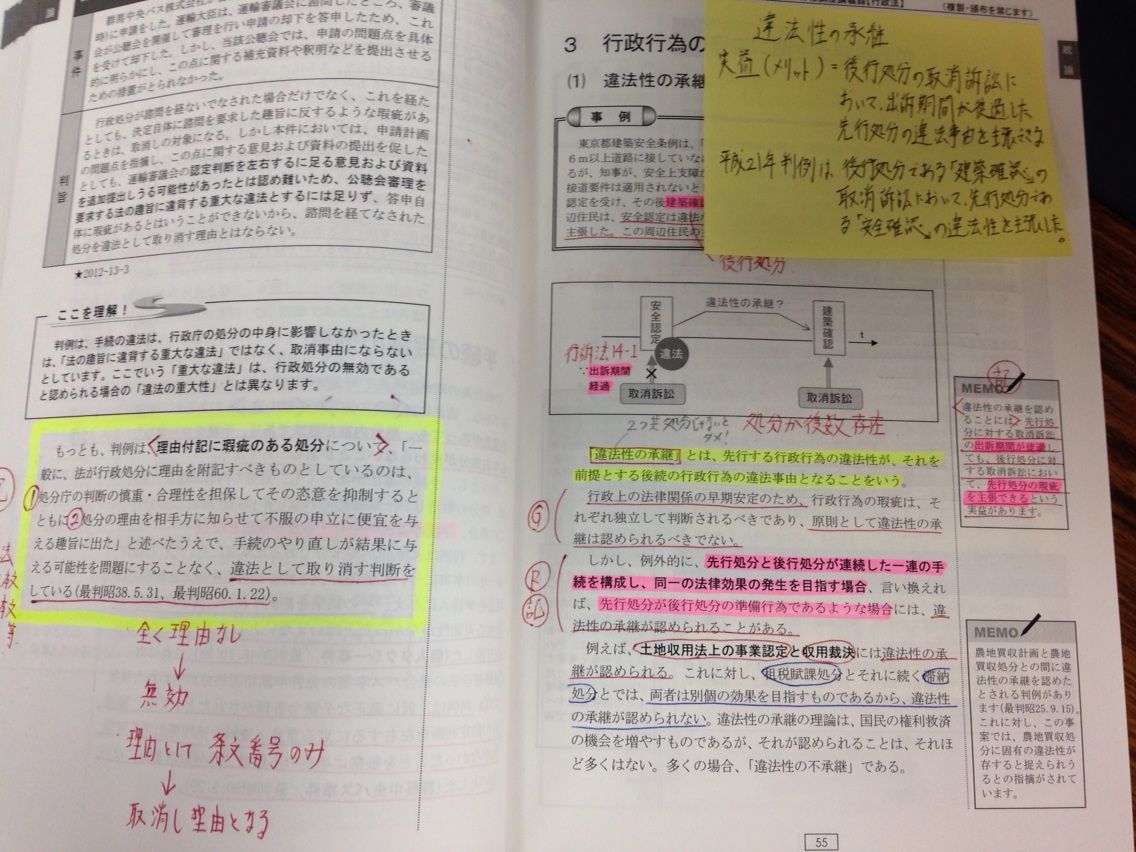 論
事件
群馬中央バス株式会社
時)に申請をした。運輸大臣は、運輸審議会に諮問したところ、審議
会が公聴会を開催して審理を行い申請の却下を答申したため、これ
を受けて却下した。しかし、当該公聴会では、申請の問題点を具体
的に明らかにし、この点に関する補充資料や釈明などを提出させる
ための措置がとられなかった。
判旨
行政処分が諮問を経ないでなされた場合だけでなく、これを経た
としても、決定自体に諮問を要求した趣旨に反するような瑕疵があ
るときは、取消しの対象になる。しかし本件においては、申請計画
の問題点を指摘し、この点に関する意見および資料の提出を促した
としても、運輸審議会の認定判断を左右するに足る意見および資料
を追加提出しうる可能性があったとは認め難いため、公聴会審理を
要求する法の趣旨に違背する重大な違法とするには足りず、答申自
体に瑕疵があるとはいうことができないから、諮問を経てなされた
処分を違法として取り消す理由とはならない。
★2012-13-3
ここを理解!
判例は、手続の違法は、行政庁の処分の中身に影響しなかったとき
は、「法の趣旨に違背する重大な違法」ではなく、取消事由にならない
としています。ここでいう「重大な違法」は、行政処分の無効である
と認められる場合の「違法の重大性」とは異なります。
もっとも、判例は<理由付記に瑕疵のある処分について>、「一
般に、法が行政処分に理由を附記すべきものとしているのは、
①処分庁の判断の慎重・合理性を担保してその恣意を抑制すると
ともに②処分の理由を相手方に知らせて不服の申立に便宜を与
える趣旨に出た」と述べたうえで、手続のやり直しが結果に与
える可能性を問題にすることなく、違法として取り消す判断を
している(最判昭38.5.31、最判昭60.1.22)。
全く理由なし
↓
無効
理由として 条文番号のみ
↓
取消し理由となる
【行政法】
(複製・頒布を禁じます)
総論
3 行政行為の
(1) 違法性の承継
違法性の承継
実益(メリット)=後行処分の取消訴訟に
おいて、出訴期間が経過した
先行処分の違法事由を主張できる
平成21年判例は、後行処分である「建築確認」の
取消訴訟において、先行処分であ
る「安全確認」の違法性を主張した。
事例
東京都建築安全条例は、
6m以上道路に接していな
るが、知事が、安全上支障が
接道要件は適用されないと
認定を受け、その後建築確認
辺住民は、安全認定は違法
主張した。この周辺住民の
後行処分
安全認定
違法性の承継?
建築確認
t
違法
行訴法14-1
∵出訴期間
経過
×
取消訴訟
取消訴訟
処分が複数存在
[違法性の承継]とは、先行する行政行為の違法性が、それを
前提とする後続の行政行為の違法事由となることをいう。
行政上の法律関係の早期安定のため、行政行為の瑕疵は、そ
れぞれ独立して判断されるべきであり、原則として違法性の承
継は認められるべきでない。
G
しかし、例外的に、先行処分と後行処分が連続した一連の手
続を構成し、同一の法律効果の発生を目指す場合、言い換えれ
ば、先行処分が後行処分の準備行為であるような場合には、違
法性の承継が認められることがある。
R
記
例えば、土地収用法上の事業認定と収用裁決には違法性の承
継が認められる。これに対し、租税賦課処分とそれに続く滞納
処分とでは、両者は別個の効果を目指すものであるから、違法性
の承継が認められない。違法性の承継の理論は、国民の権利救済
の機会を増やすものであるが、それが認められることは、それほ
ど多くはない。多くの場合、「違法性の不承継」である。
MEMO
違法性の承継を認め
ることには、先行処
分に対する取消訴訟
の出訴期間が経過し
ても、後行処分に対
する取消訴訟におい
て、先行処分の瑕疵
を主張できるという
実益があります。
MEMO
農地買収計画と農地
買収処分との間に違
法性の承継を認めた
とされる判例があり
ます(最判昭25.9.15)。
これに対し、この事
案では、農地買収処
分に固有の違法性が
存すると捉えられう
るとの指摘がされて
います。
55